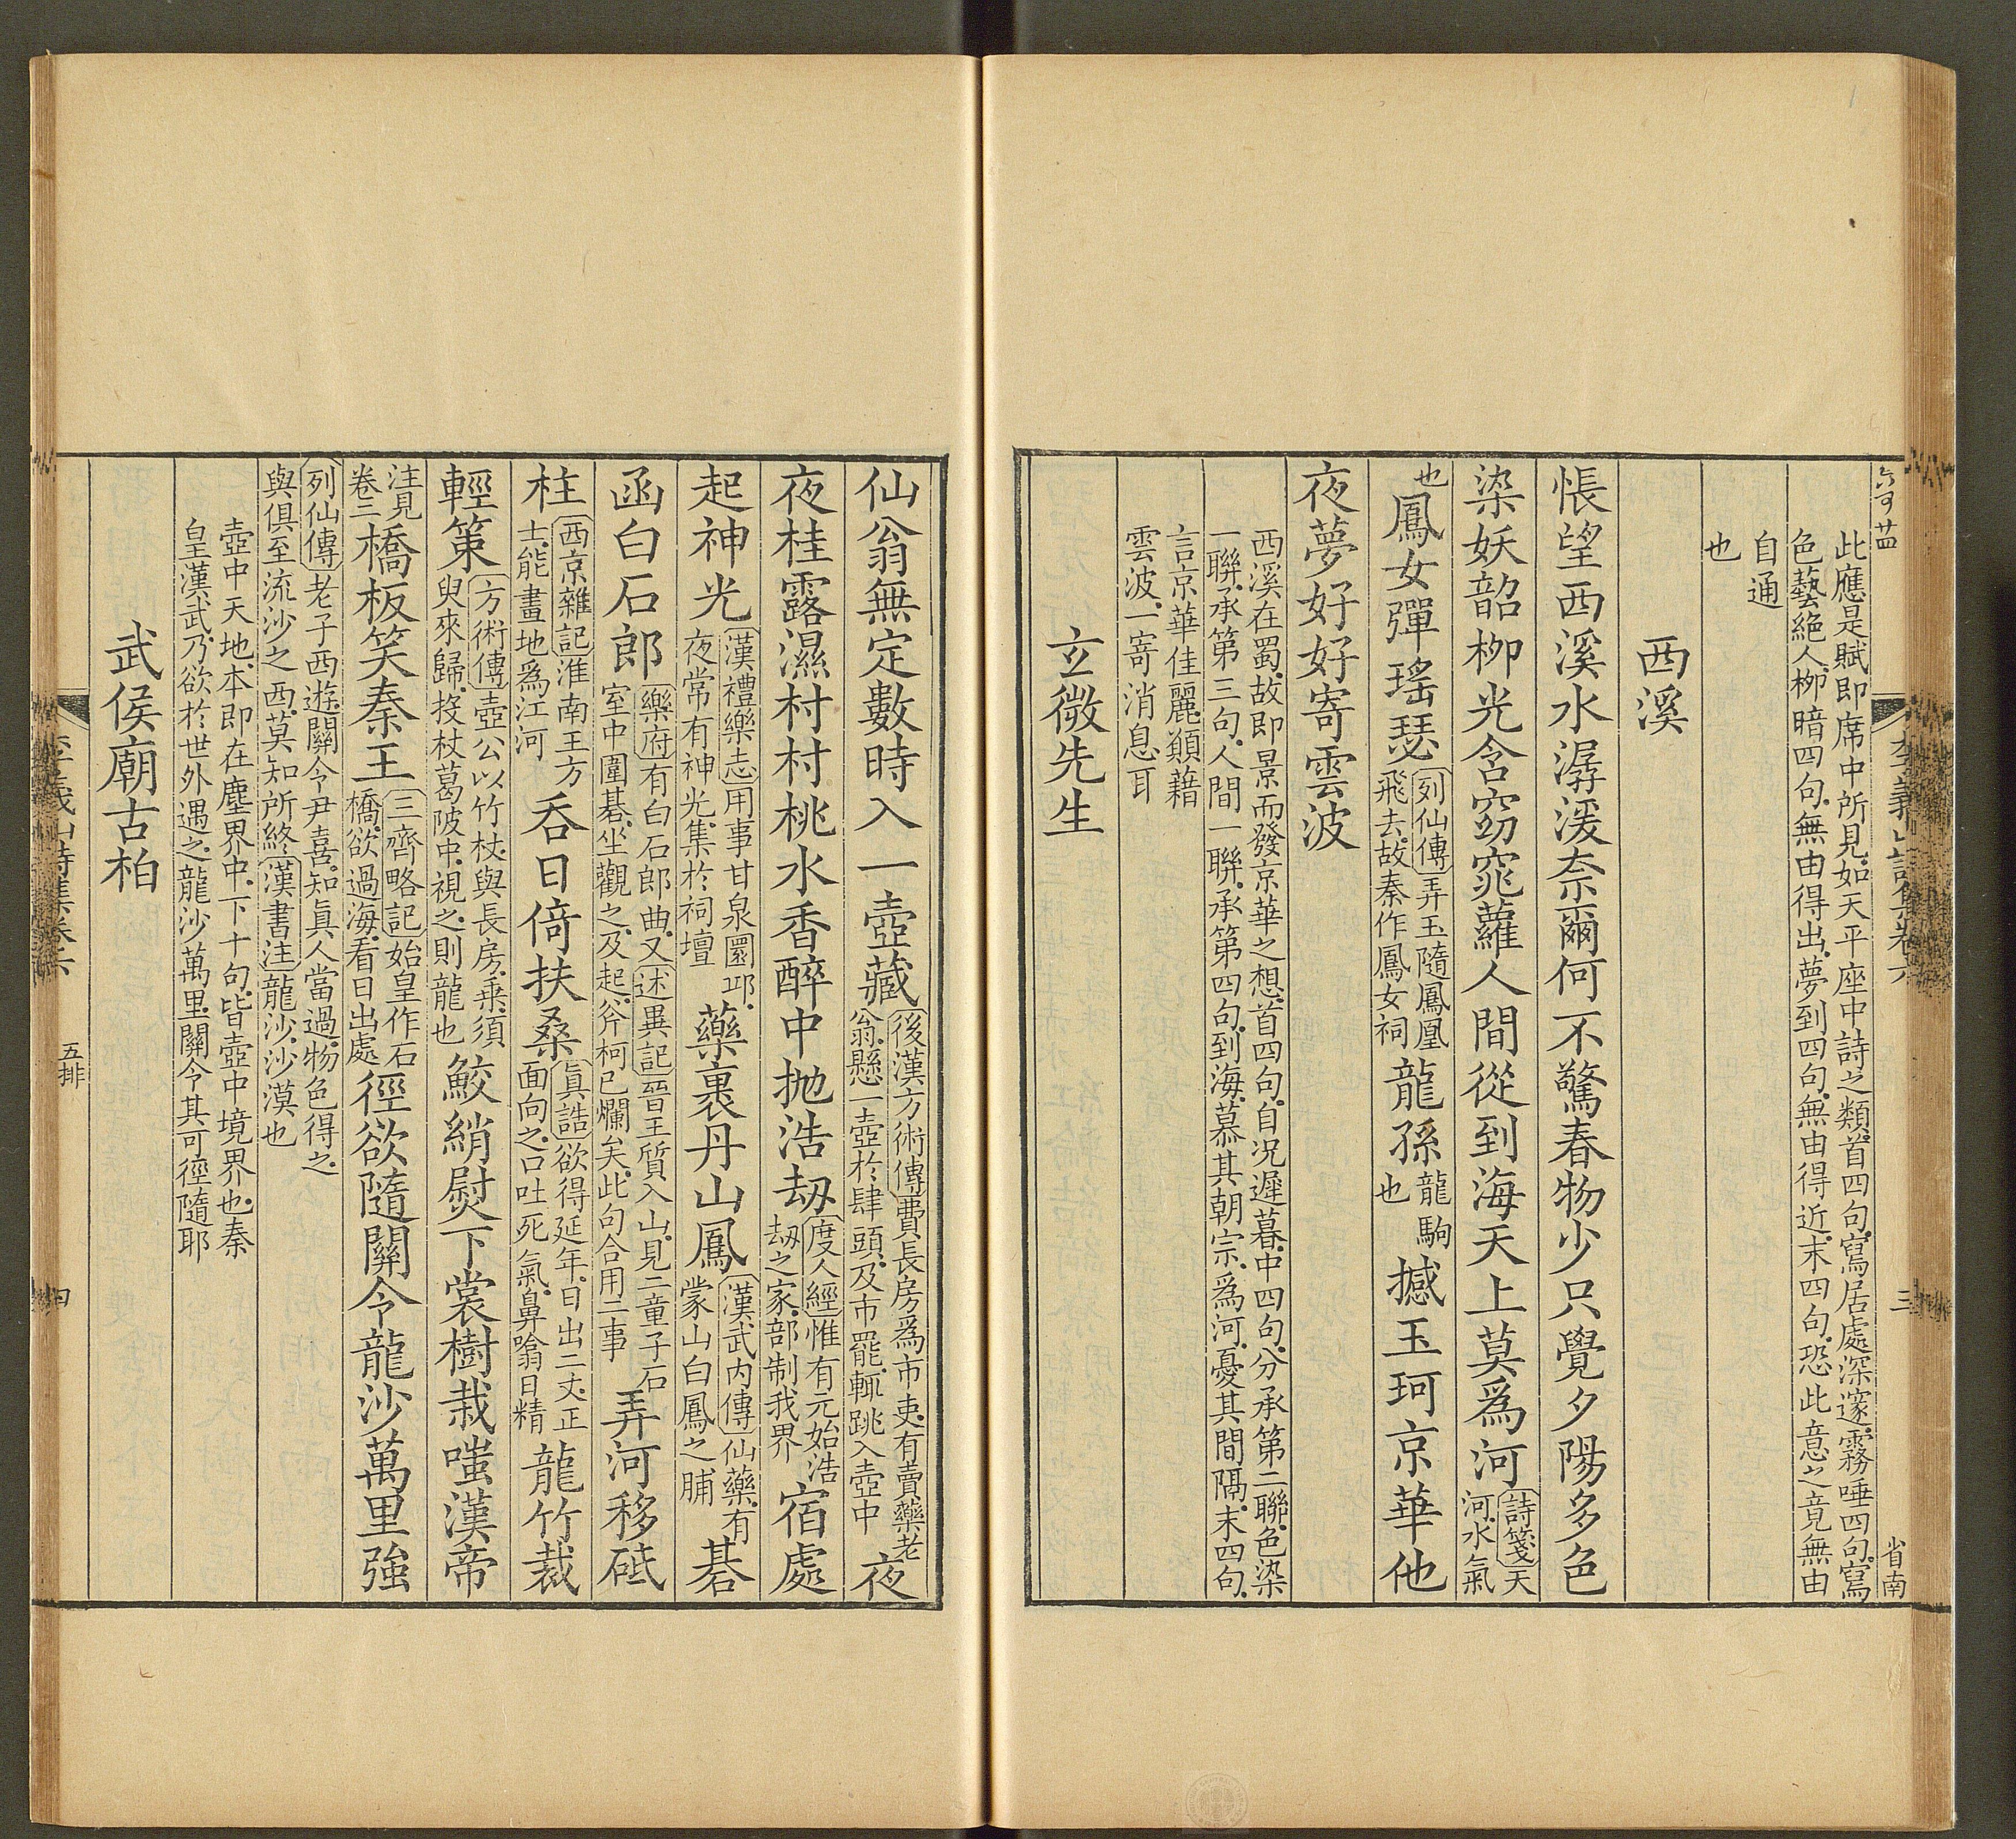 李義山詩集卷六
三
省南
此應是賦即席中所見如天平座中詩之類首四句寫居處深邃霧唾四句寫
色藝絕人栁暗四句無由得出夢到四句無由得近末四句恐此意之竟無由
自通
也
西溪
悵望西溪水潺湲柰爾何不驚春物少只覺夕陽多色
染妖韶栁光含窈窕蘿人間從到海天上莫爲河詩箋天河水氣
也鳳女彈瑤瑟列仙傳弄玉隨鳳凰飛去故秦作鳳女祠龍孫龍駒也撼玉珂京華他
夜夢好好寄雲波
西溪在蜀故即景而發京華之想首四句自况遲暮中四句分承第二聯色染
一聯承第三句人間一聯承第四句到海慕其朝宗爲河憂其間隔末四句
言京華佳麗顓藉
雲波一寄消息耳
玄微先生
仙翁無定數時入一壺藏後漢方術傳費長房爲市吏有賣藥老翁懸一壺於肆頭及市罷輒跳入壺中夜
夜桂露濕村村桃水香醉中抛浩劫度人經惟有元始浩劫之家部制我界宿處
起神光漢禮樂志用事甘泉圜邱夜常有神光集於祠壇藥裹丹山鳳漢武内傳仙藥有蒙山白鳳之脯碁
函白石郎樂府有白石郎曲又述異記晉王質入山見二童子石室中圍碁坐觀之及起斧柯已爛矣此句合用二事弄河移砥
柱西京雜記淮南王方士能畫地爲江河吞日倚扶桑眞誥欲得延年日出二丈正面向之口吐死氣鼻噏日精龍竹裁
輕策方術傳壺公以竹杖與長房乘須臾來歸投杖葛陂中視之則龍也鮫綃熨下裳樹栽嗤漢帝
注見卷三橋板笑秦王三齊略記始皇作石橋欲過海看日出處徑欲隨關令龍沙萬里強
列仙傳老子西遊關令尹喜知眞人當過物色得之與俱至流沙之西莫知所終漢書注龍沙沙漠也
壺中天地本即在塵界中下十句皆壺中境界也秦
皇漢武乃欲於世外遇之龍沙萬里關令其可徑隨耶
武侯廟古柏
李義山詩集卷六
五排
四